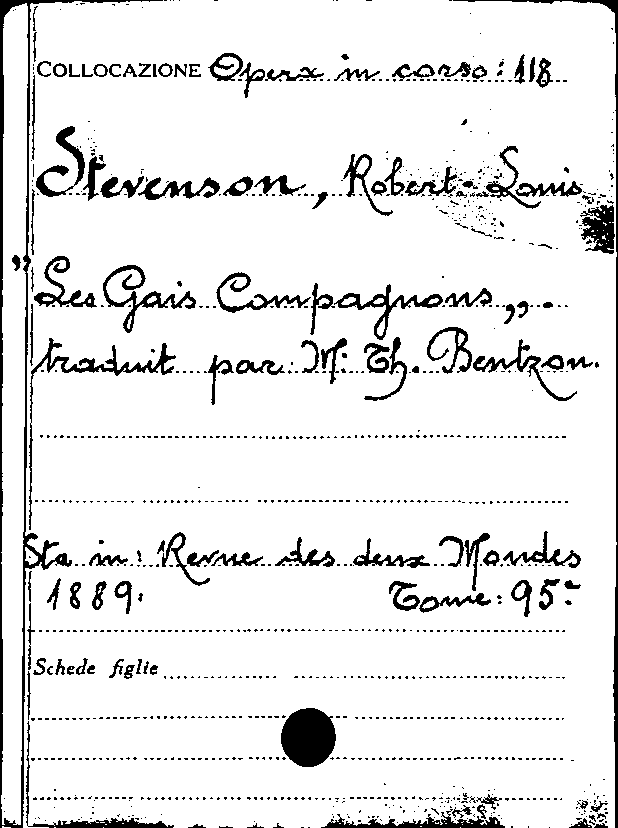 COLLOCAZIONE Opera in corso: 118
Stevenson, Robert-Louis
"Les Gais Compagnons„.
traduit par M. Th. Bentzon.
Sta in: Revue des deux Mondes
1889. Tome: 95.e
Schede figlie